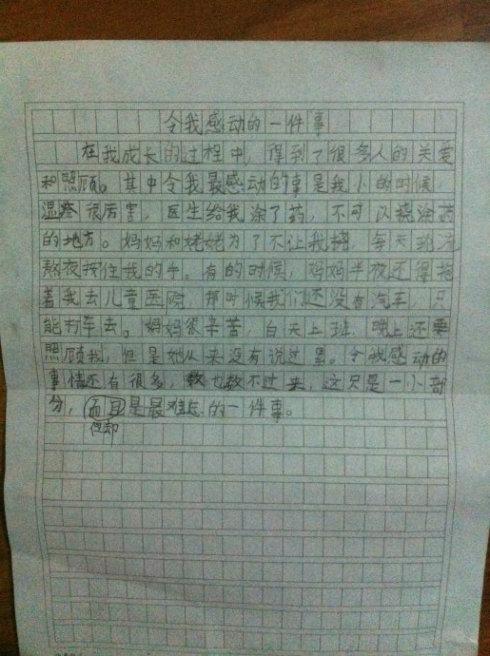 令我感动的一件事
在我成长的过程中，得到了很多人的关爱
和照顾。其中令我最感动的事是我小的时候，
湿疹很厉害，医生给我涂了药，不可以挠涂药
的地方。妈妈和姥姥为了不让我挠，每天轮流
熬夜按住我的手。有的时候，妈妈半夜还得抱
着我去儿童医院，那时候我们还没有汽车，只
能打车去。妈妈很辛苦，白天上班，晚上还要
照顾我，但是她从来没有说过累。令我感动的
事情还有很多，数也数不过来，这只是一小部
分，而且是最难忘的一件事。
但却